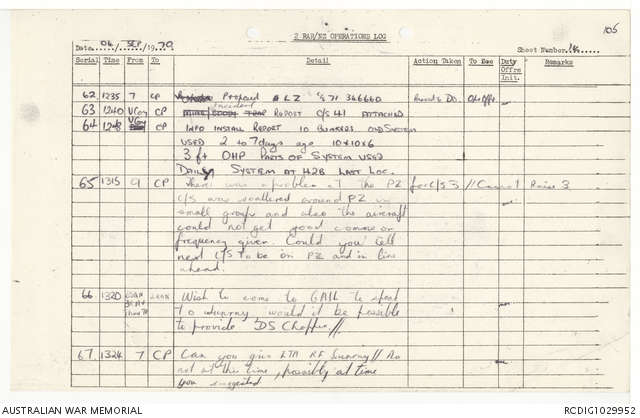 105
2 RAR/NZ OPERATIONS LOG
Date 04 / SEP / 1970
Sheet Number 14
Serial Time From To Detail Action Taken To Dec Duty Offrs Init. Remarks
62 1235 7 CP Proposed LZ C/S 71 366660
63 1240 VCoy CP Incident REPORT C/S 41 ATTACHED
64 1248 VCoy CP INFO INSTALL REPORT 10 BUNKERS OLD SYSTEM
USED 2 to 7 days ago 10x10x6
3 ft OHP PARTS OF SYSTEM USED
DAILY SYSTEM AT H2B LAST LOC.
65 1315 9 CP There was a problem at the PZ for C/S 3 // Cannot Raise 3
C/S was scattered around PZ in
small groups and also the aircraft
could not get good comms on
frequency given. Could you tell
next C/S to be on PZ and in line
ahead.
66 1320 Wish to come to GAIL to speak
to sunray would it be possible
to provide DS Chopper //
67 1324 7 CP Can you give ETA RF Sunray // No
not at this time, possibly at time
you suggested
AUSTRALIAN WAR MEMORIAL
RCDIG1029952